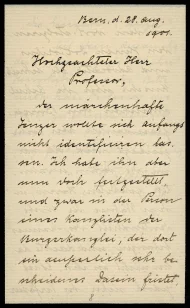 Bern, d. 28. Aug.
1901.
Hochgeachteter Herr
Professor,
Der märchenhafte
wollte sich anfangs
nicht identifizieren las-
sen. Ich habe ihn aber
nun doch festgestellt,
und zwar in der Person
eines Kanzlisten der
Burgerkanzlei, der dort
ein äusserlich sehr be-
scheidenes Dasein fristet,